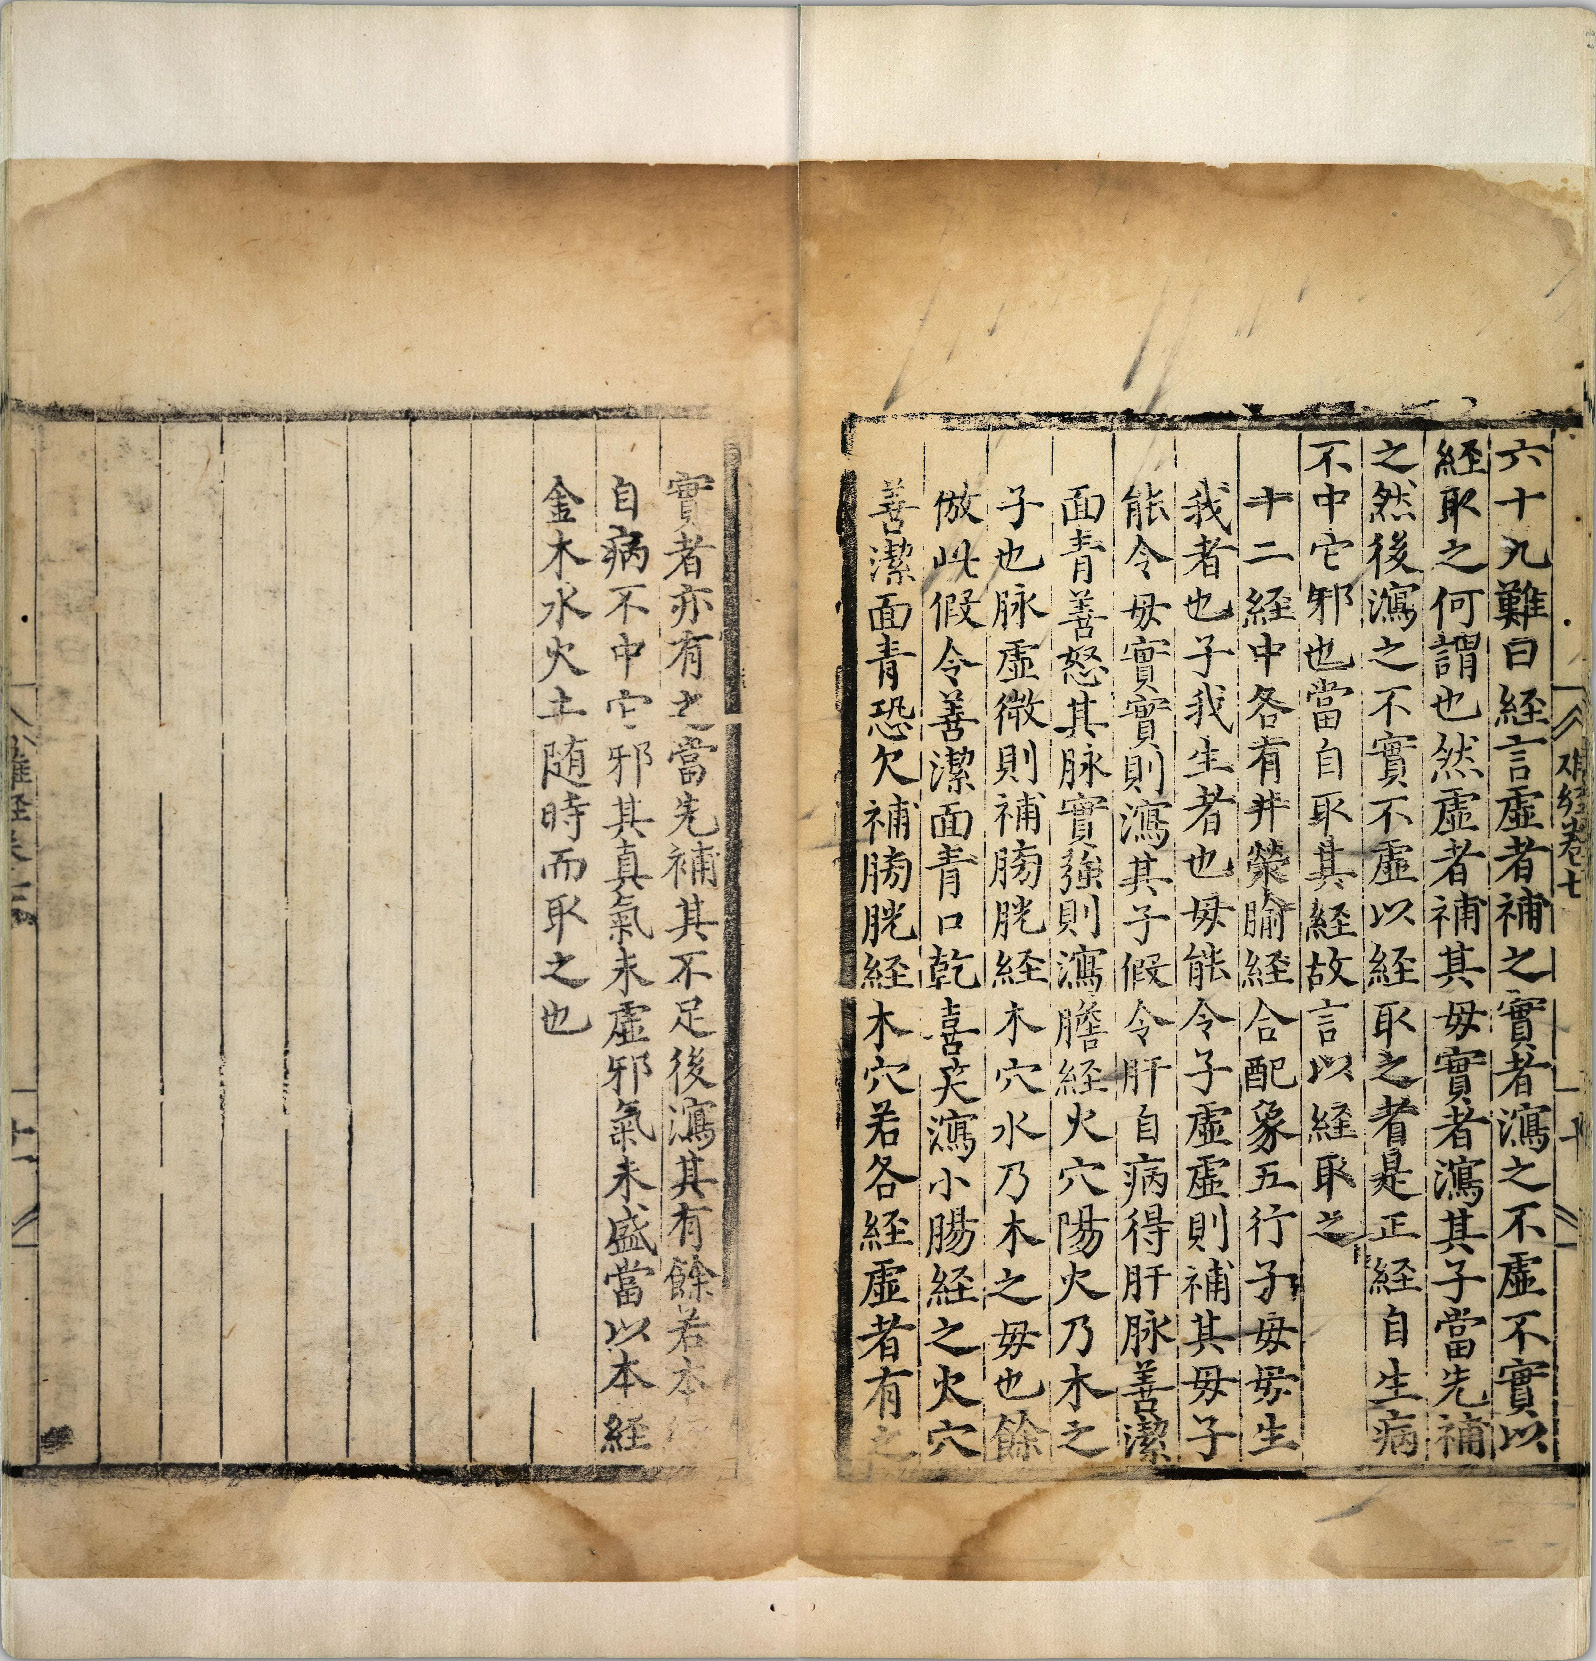 六十九難曰経言虛者補之實者瀉之不虛不實以
経取之何謂也然虛者補其毋實者瀉其子當先補
之然後瀉之不實不虛以経取之者是正経自生病
不中它邪也當自取其経故言以経取之
十二経中各有井滎腧経合配象五行子毋毋生
我者也子我生者也毋能令子虛虛則補其毋子
能令毋實實則瀉其子假令肝自病得肝脉善潔
面青善怒其脉實強則瀉膽経火穴陽火乃木之
子也脉虛微則補膀胱経木穴水乃木之毋也餘
倣此假令善潔面青口乾喜笑瀉小腸経之火穴
善潔面青恐欠補膀胱経木穴若各経虛者有之
實者亦有之當先補其不足後瀉其有餘若本
自病不中它邪其真氣未虛邪氣未盛當以本経
金木水火土随時而取之也